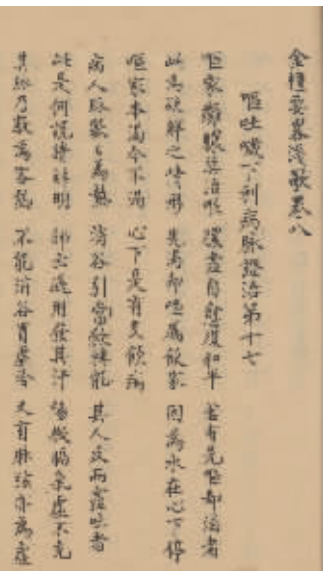 金匱要畧歌卷八
嘔吐噦下利病脉證治第十七
嘔家癰膿莫治嘔 膿盡自愈復和平 若有先嘔却渴者
此為欲解之情形 先渴却嘔屬飲家 因為水在心下停
嘔家本渴今不渴 心下是有支飲病
病人脉數名為熱 消谷引能 其人反而吐者
此是何請詳明 師云用發其汗 陽微膈氣虛不充
其脉乃數為客熱 不能消谷胃虛冷 又有脉弦亦為虛